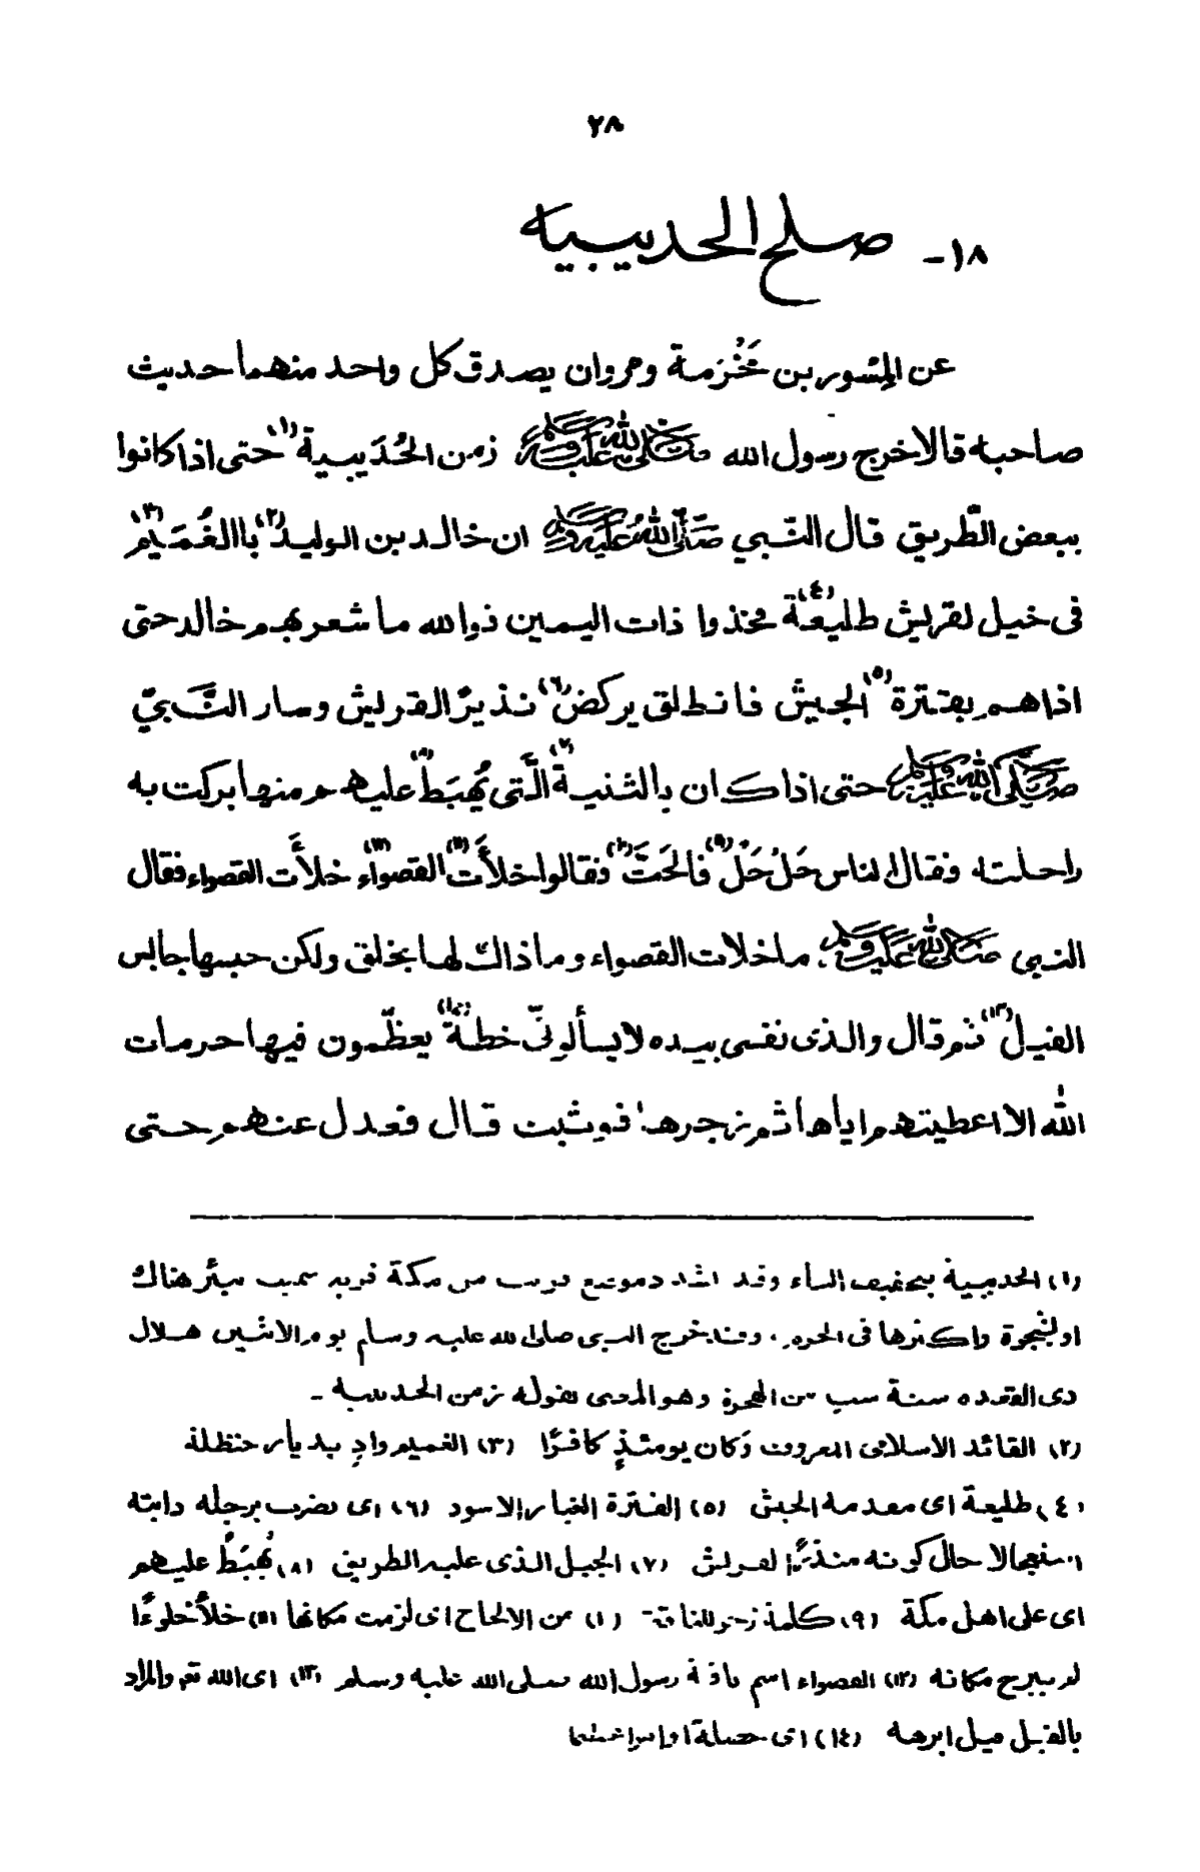 ٢٨
١٨- صلح الحديبيه
عن المِسْور بن مَخْرَمة ومروان يصدق كل واحد منهما حديث
صاحبه قالا خرج رسول الله صلى الله عليه وسلم زمن الحُدَيبية (١) حتى اذا كانوا
ببعض الطّريق قال النّبي صلى الله عليه وسلم ان خالد بن الوليد (٢) باالغُمَيْم (٣)
فى خيل لقريش طليعة (٤) فخذوا ذات اليمين فوالله ما شعر بهم خالد حتى
اذا هم بقترة (٥) الجيش فانطلق يركض (٦) نذيرًا لقريش وسار النَّبيّ
صلى الله عليه وسلم حتى اذا كان بالثنية (٧) الَّتى يُهبَط (٨) عليهم منها بركت به
راحلته فقال الناس حَلْ حَلْ (٩) فالحَتّ (١٠) فقالوا خلأَت (١١) القصواء (١٢) خلأَت القصواء فقال
النبى صلى الله عليه وسلم ما خلات القصواء وما ذاك لها بخلق ولكن حبسها حابس
الفيل (١٣) ثم قال والذى نفسى بيده لا يسألونّى خطة (١٤) يعظّمون فيها حرمات
الله الا اعطيتهم اياها ثم زجرها فوثبت قال فعدل عنهم حتى
(١) الحديبية بتخفيف الياء وقد تشدد موضع قريب من مكة قريه سميت ببئر هناك
او لشجرة واكثرها فى الحرم، وقد خرج النبى صلى الله عليه وسلم يوم الاثنين هلال
ذى القعده سنة ست من الهجرة وهو المعنى بقوله زمن الحديبيه -
(٢) القائد الاسلامى المعروف وكان يومئذٍ كافرًا (٣) الغميم وادٍ بديار حنظلة
(٤) طليعة اى مقدمة الجيش (٥) الفترة الغبار الاسود (٦) اى يضرب برجله دابته
استعجالا حال كونه منذرًا لقريش (٧) الجبل الذى عليه الطريق (٨) يُهبَط عليهم
اى على اهل مكة (٩) كلمة زجر للناقة (١٠) من الالحاح اى لزمت مكانها (١١) خلأ خلوءًا
لم يبرح مكانه (١٢) القصواء اسم ناقة رسول الله صلى الله عليه وسلم (١٣) اى الله تعـ والمراد
بالفيل فيل ابرهه (١٤) اى خصلة